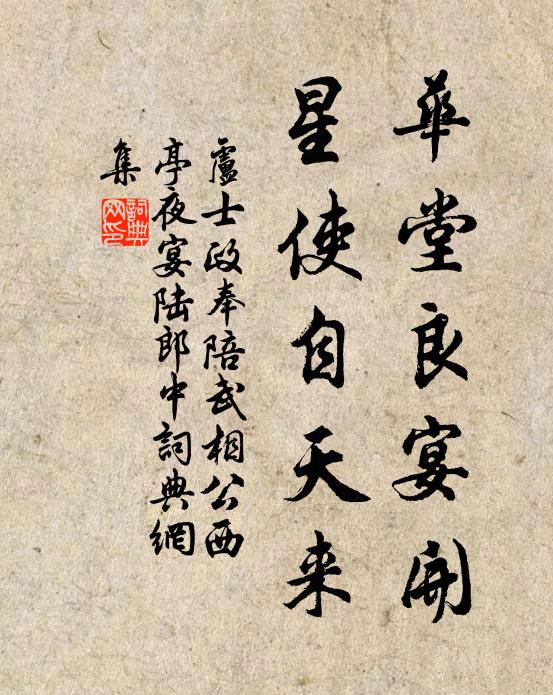 華堂良宴開
星使自天来
盧士政奉陪武相公西
亭夜宴陆郎中詞典網
集
詞典
网印